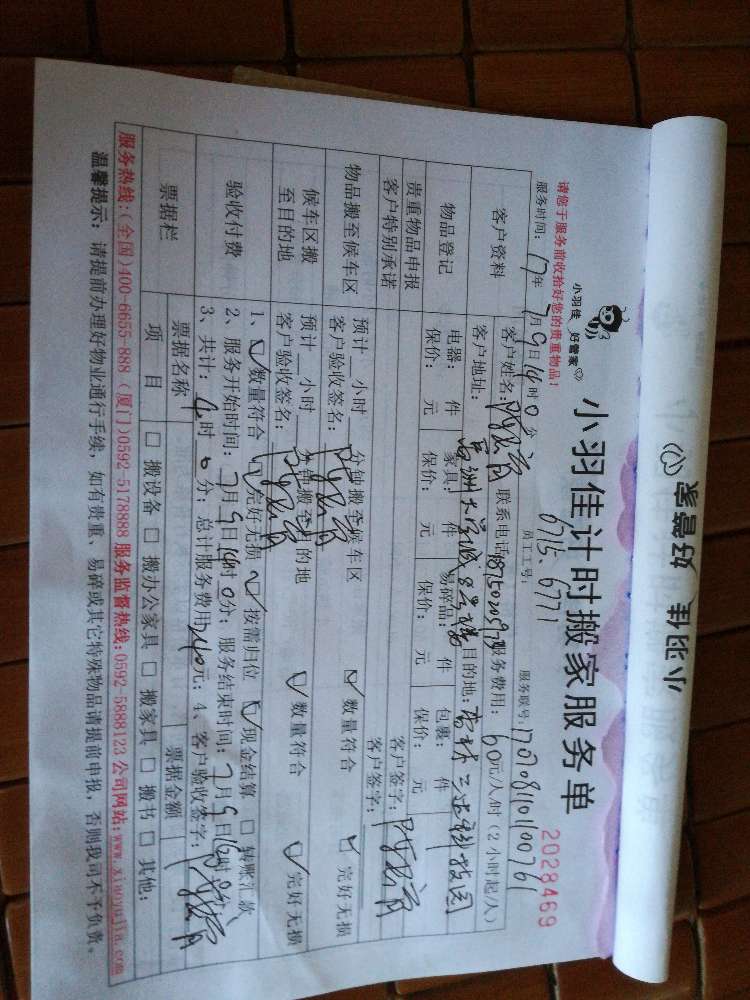 小羽佳 好管家
小羽佳 好管家
小羽佳计时搬家服务单
2028469
请您于服务前收拾好您的贵重物品!
员工工号: 6715、6771
服务联号:
服务时间: 17年7月9日14时0分
客户资料
客户姓名: 联系电话 服务费用: 60元/人/时(2小时起/人)
客户地址: 目的地:
物品登记
电器: 件 家具: 件 易碎品: 件 包裹: 件
保价: 元 保价: 元 保价: 元 保价: 元
贵重物品申报 客户签字:
客户特别承诺 客户签字:
物品搬至候车区
预计 小时 分钟搬至候车区 数量符合 完好无损
客户验收签名:
候车区搬至目的地
预计 小时 分钟搬至目的地 数量符合 完好无损
客户验收签名:
验收付费
1、 数量符合 完好无损 按需归位 现金结算 转账汇款
2、服务开始时间: 7月9日14时0分; 服务结束时间: 7月9日16时0分
3、共计: 4时0分; 总计服务费用240元; 4、客户验收签字:
票据栏
票据名称 票据金额
项目 搬设备 搬办公家具 搬家具 搬书 其他:
服务热线:(全国)400-6655-888 (厦门)0592-5178888 服务监督热线:0592-5888123 公司网站:www.xiaoyujia.com
温馨提示: 请提前办理好物业通行手续, 如有贵重、易碎或其它特殊物品请提前申报, 否则我司不予负责。